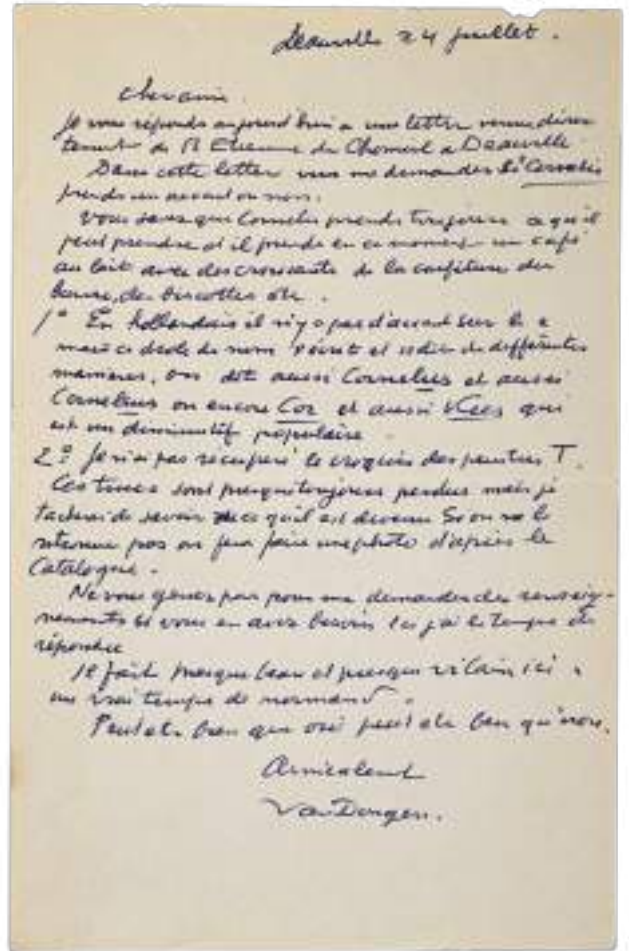 Deauville 24 juillet.
cher ami.
Je vous réponds aujourd'hui a une lettre venue direc
tement de R Etienne du Chomeil a Deauville
Dans cette lettre vous me demandez si Cornelis
prends un accent ou non.
Vous savez que Cornelis prends toujours ce qu'il
peut prendre et il prends en ce moment un café
au lait avec des croissants de la confiture du
beurre, des biscottes etc.
1° En hollandais il n'y a pas d'accent sur le e
mais ce drole de nom s'écrit et se dit de differentes
manieres, on dit aussi Cornelus et aussi
Cornelius ou encore Cor et aussi Kees qui
est un diminutif populaire
2° Je n'ai pas recuperé le croquis des T.
Ces trucs sont presque toujours perdus mais je
tacherai de savoir ce qu'il est devenu Si on ne le
retrouve pas on peu faire une photo d'après le
Catalogue.
Ne vous genez pas pour me demander des renseig-
nements si vous en avez besoin Ici j'ai le temps de
répondre
Il fait presque beau et presque vilain ici,
un vrai temps de normand.
Peut etr bien que oui peut etr ben qu'non.
Amicalement
Van Dongen.